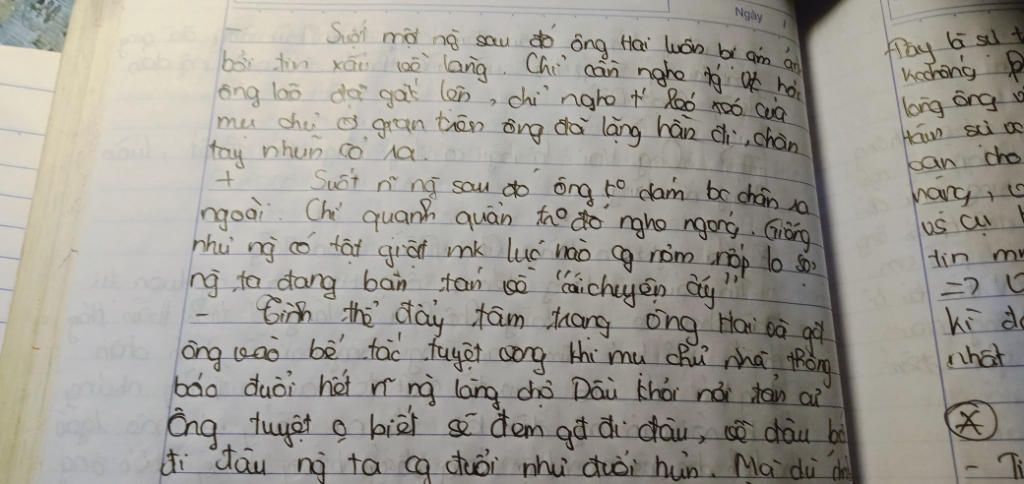 Ngày
Suốt mộ ng̃ sau đó ông Hai luôn bị ám ản
bởi tin xấu về làng. Chỉ cần nghe
ông lão đã gắt lên, chỉ nghe
mụ chủ ở gian trên ông đã lặng hẳn đi, chân
tay nhũn cả ra.
+ Suốt n̄ ng̀ sau đó ông k° dám bc chân ra
ngoài. Chỉ quanh quẩn đó nghe ngóng. Giống
như ng̀ có tật giật mk lúc nào cg nơm nớp lo sợ,
ng̀ ta đang bàn tán về "cái chuyện ấy"
- Tình thế đẩy tâm trạng ông Hai và gđ
ông vào bế tắc tuyệt vọng khi mụ chủ nhà thông
báo đuổi hết n̄ ng̀ làng chợ Dầu khỏi nơi tản cư
Ông tuyệt biết sẽ đem gđ đi đâu, về đâu bở
đi đâu ng̀ ta cg đuổi như đuổi hủi. Mai dù
Đây là sự t
không p
làng ông v
tâm sự
can cho
nặng,
về cụ
tin m
=>
kì đ
nhất
*
- Ti